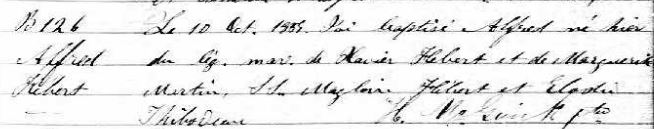 B126 Le 10 Oct. 1884. J'ai baptisé Alfred né hier
Alfred du lég. mar. de Xavier Hebert et de Marguerite
Hebert Martin, S.S. Magloire Hébert et Elodie
— Thibodeau H. McGuirk ptre